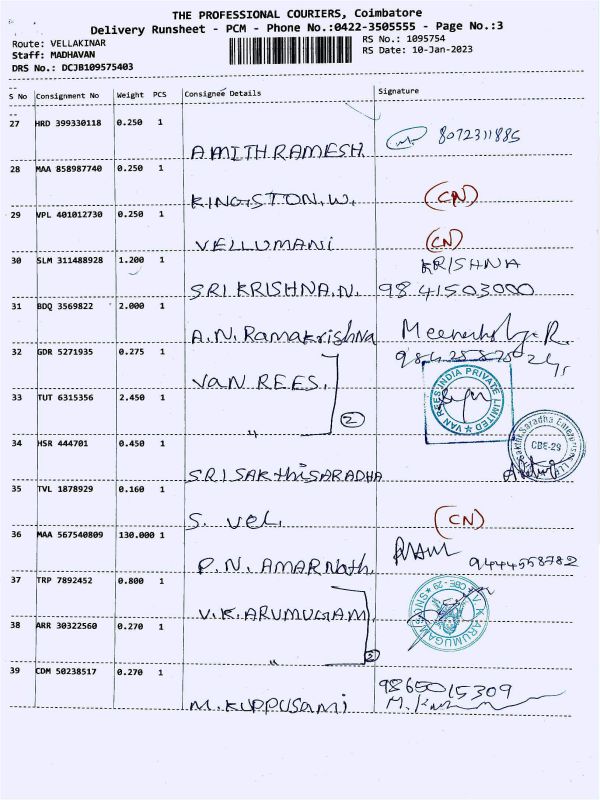 THE PROFESSIONAL COURIERS, Coimbatore
Delivery Runsheet - PCM - Phone No.:0422-3505555 - Page No.:3
Route: VELLAKINAR
RS No.: 1095754
Staff: MADHAVAN
RS Date: 10-Jan-2023
DRS No.: DCJB109575403
S No Consignment No Weight PCS Consignee Details Signature
27 HRD 399330118 0.250 1
8072311885
AMITH RAMESH
28 MAA 858987740 0.250 1
KINGSTON.W. (CN)
29 VPL 401012730 0.250 1
VELLUMANI (CN)
30 SLM 311488928 1.200 1
KRISHNA
SRI KRISHNA.N. 9841503000
31 BDQ 3569822 2.000 1
A.N. Ramakrishna
32 GDR 5271935 0.275 1
VAN REES.
VAN REES INDIA PRIVATE LIMITED
33 TUT 6315356 2.450 1
" 2
34 HSR 444701 0.450 1
CBE-29
SRI SAKTHI SARADHA
35 TVL 1878929 0.160 1
S. Vel. (CN)
36 MAA 567540809 130.000 1
P.N. AMARNATH. 9444558782
37 TRP 7892452 0.800 1
V.K. ARUMUGAM
V K ARUMUGAM SNUFF CBE - 29
38 ARR 30322560 0.270 1
"
39 CDM 50238517 0.270 1
9865015309
M. KUPPUSAMI